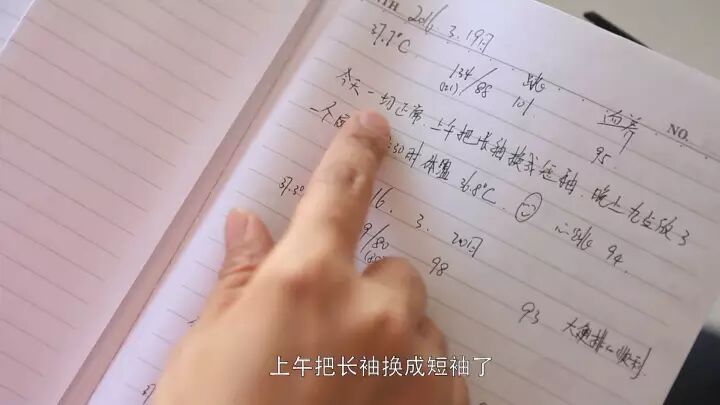 2016.3.19日
37.7°C 134/88 跳 血养
(121) 101 95 NO.
今天一切正常.上午把长袖换成短袖.晚上九点放了
一个 :30时体温36.8°C. 心跳94.
37.3 16.3.20日
9/80 98
93 大便排 顺利
上午把长袖换成短袖了